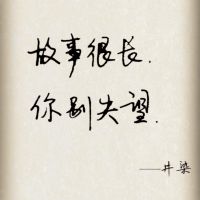 故事很长.
你别失望.
——井染